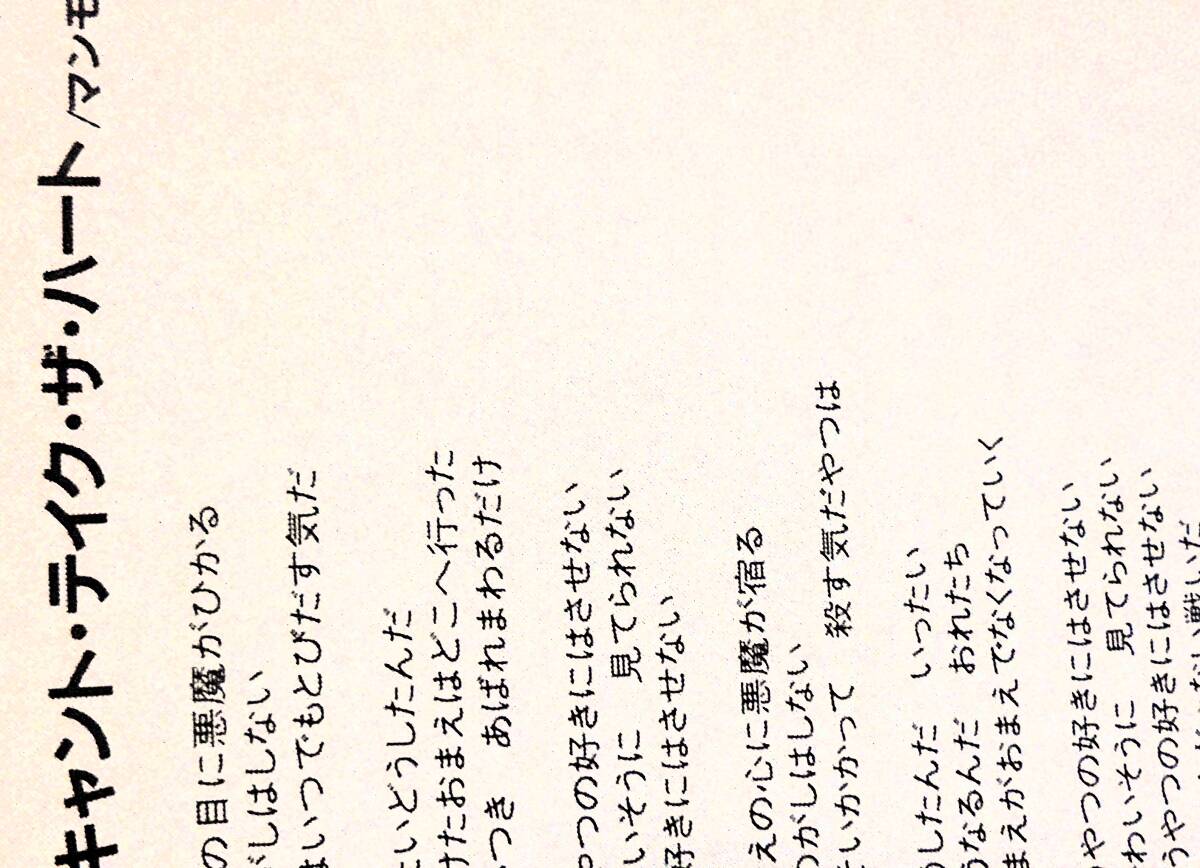 キャント・テイク・ザ・ハート／マンモ
の目に悪魔がひかる
がしはしない
はいつでもとびだす気だ
たいどうしたんだ
けたおまえはどこへ行った
つき　あばれまわるだけ
やつの好きにはさせない
いそうに　見てられない
好きにはさせない
えの心に悪魔が宿る
のがしはしない
そいかかって　殺す気だやつは
うしたんだ　いったい
うなるんだ　おれたち
まえがおまえでなくなっていく
のやつの好きにはさせない
わいそうに　見てられない
うやつの好きにはさせない
ない戦いだ